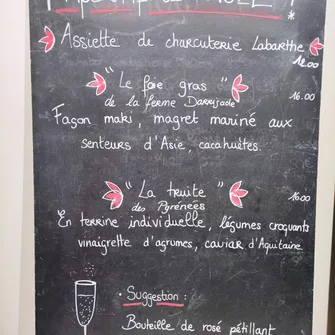 Assiette de charcuterie Labarthe
12.00
"Le foie gras" 16.00
de la ferme Darrigade
Façon maki, magret mariné aux
senteurs d'Asie, cacahuètes.
"La truite" 16.00
des Pyrénées
En terrine individuelle, légumes croquants
vinaigrette d'agrumes, caviar d'Aquitaine
• Suggestion :
Bouteille de rosé pétillant